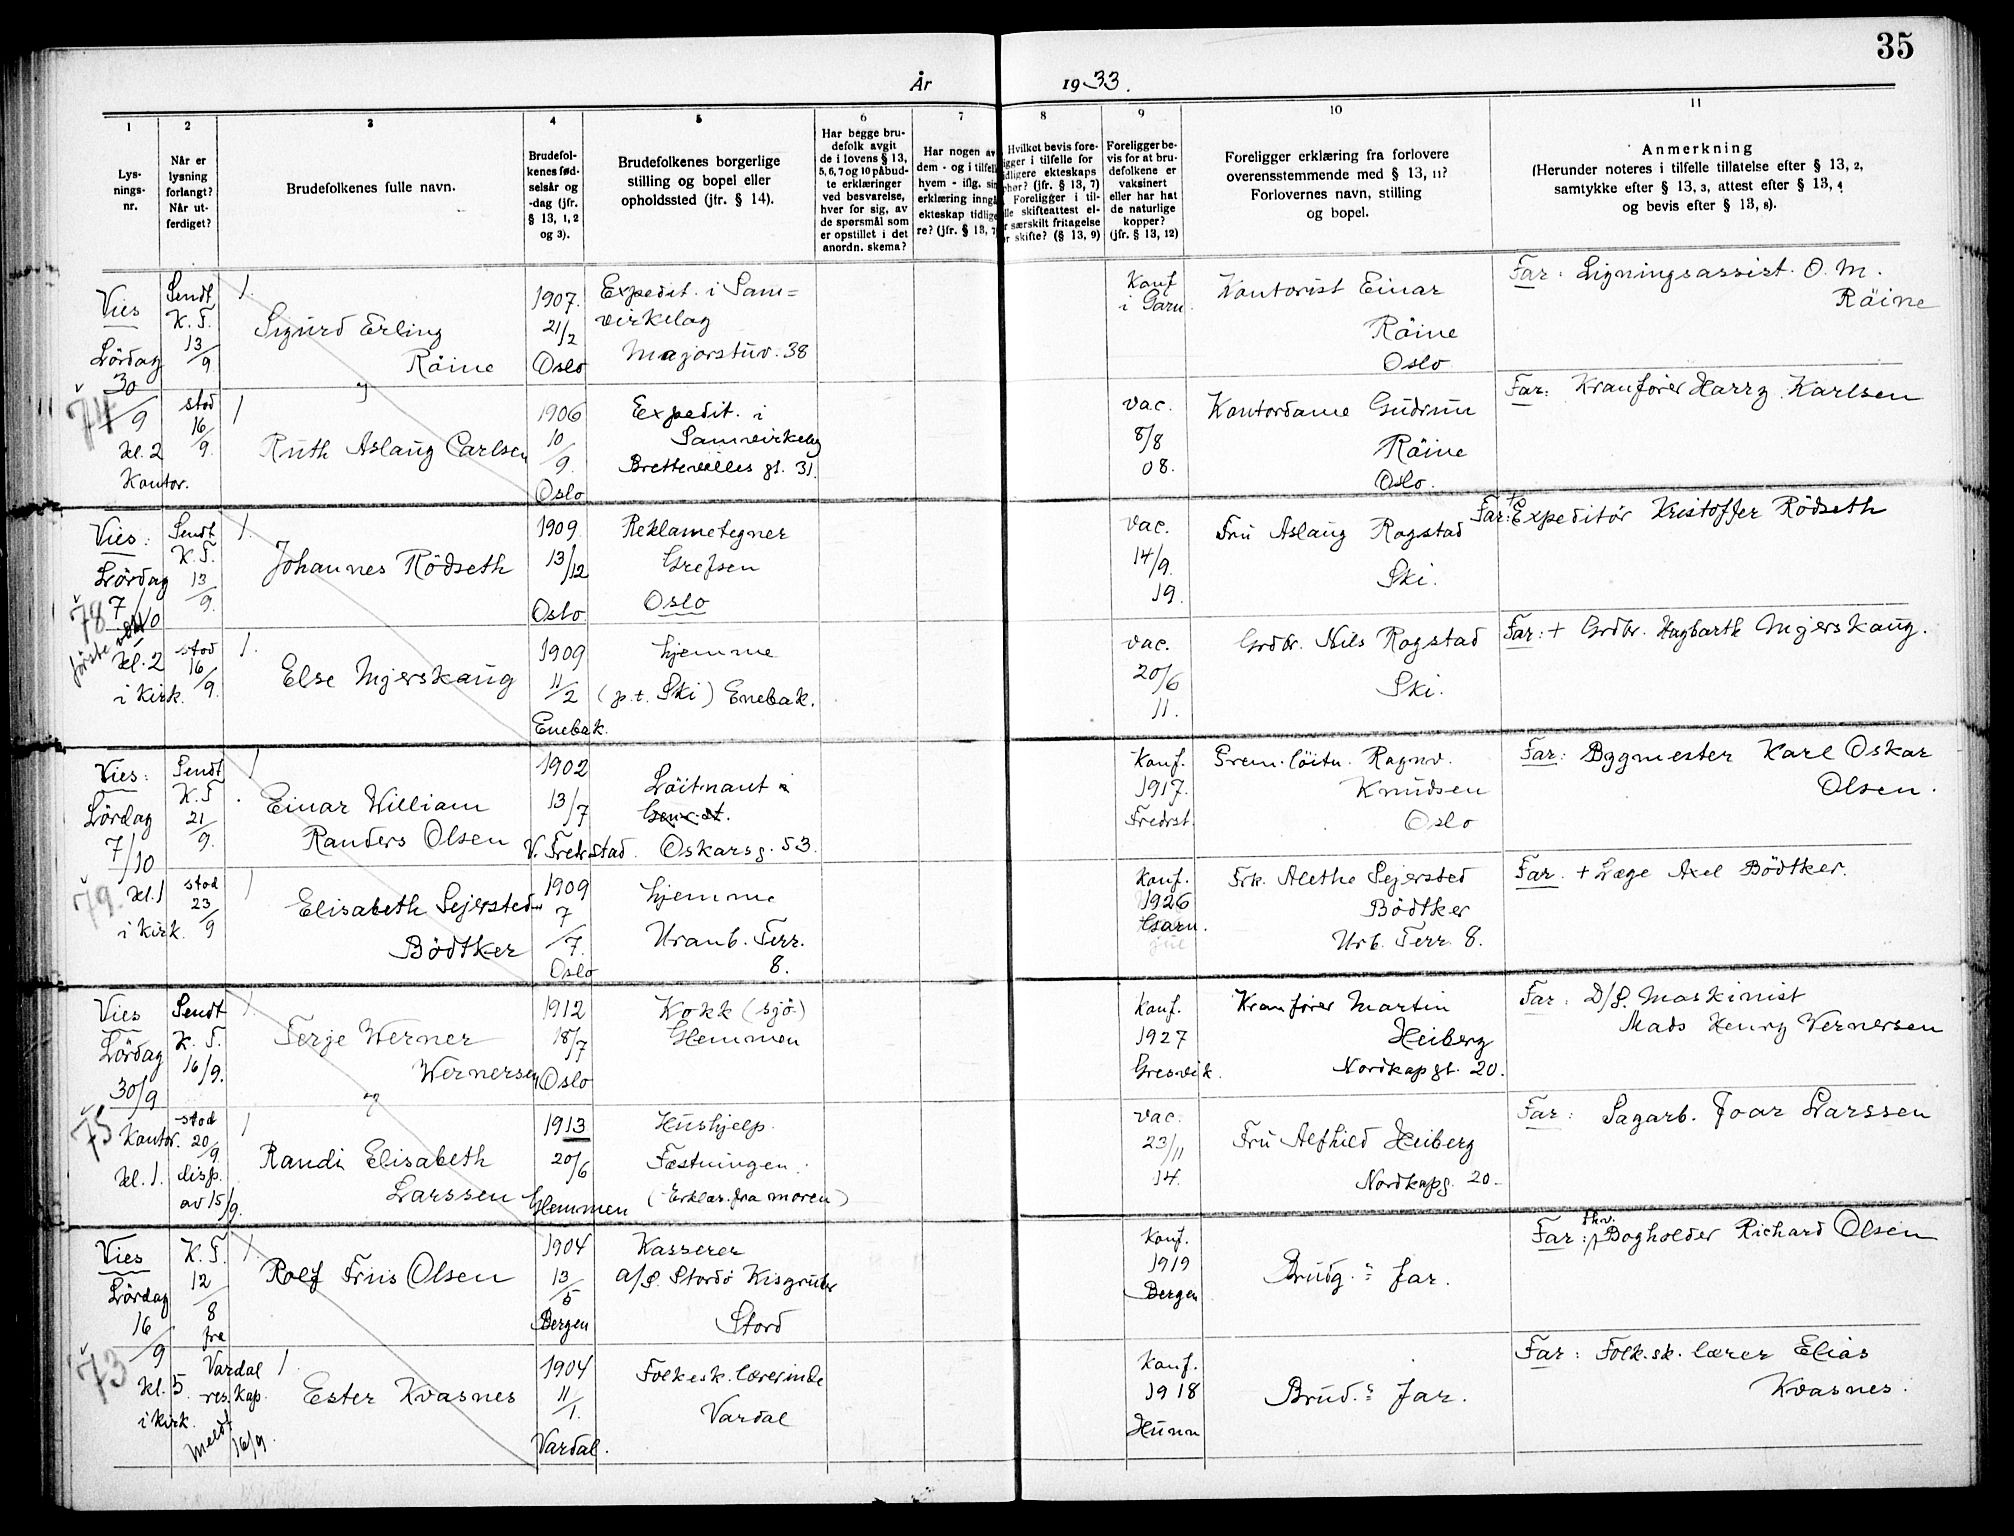 35
År 1933.
1
2
3
4
5
6
7
8
9
10
11
Lys-
nings-
nr.
Når er
lysning
forlangt?
Når ut-
ferdiget?
Brudefolkenes fulle navn.
Brudefol-
kenes fød-
selsår og
-dag (jfr.
§ 13, 1, 2
og 3).
Brudefolkenes borgerlige
stilling og bopel eller
opholdssted (jfr. § 14).
Har begge bru-
defolk avgit
de i lovens § 13,
5, 6, 7 og 10 påbud-
te erklæringer
ved besvarelse,
hver for sig, av
de spørsmål som
er opstillet i det
anordn. skema?
Har nogen av
dem - og i tilfelle
hvem - iflg. sin
erklæring inngå
ekteskap tidlige
re? (jfr. § 13, 7
Hvilket bevis fore-
igger i tilfelle for
idligere ekteskaps
phør? (jfr. § 13, 7)
Foreligger i til-
lle skifteattest el-
r særskilt fritagelse
or skifte? (§ 13, 9)
Foreligger be-
vis for at bru-
defolkene er
vaksinert
eller har hat
de naturlige
kopper?
(jfr. § 13, 12)
Foreligger erklæring fra forlovere
overensstemmende med § 13, 11?
Forlovernes navn, stilling
og bopel.
Anmerkning
(Herunder noteres i tilfelle tillatelse efter § 13, 2,
samtykke efter § 13, 3, attest efter § 13, 4
og bevis efter § 13, 8).
Vies
Lördag
30/9
74
kl. 2
Kontor.
Sendt
K. T.
13/9
stod
16/9.
1.
Sigurd Erling
Röine
1907.
21/2
Oslo
Expedit. i Sam=
virkelag
Majorstuv. 38
Konf
i Garn.
Kontorist Einar
Röine
Oslo
Far: Ligningsassist. O. M.
Röine
1
Ruth Aslaug Carlsen
1906
10/9.
Oslo
Expedit. i
Samvirkelag
Brettevilles gt. 31.
vac.
8/8
08.
Kontordame Gudrun
Röine
Oslo.
Far: Kranförer Harry Karlsen
Vies:
Lördag
7/10
78
første
kl. 2
i Kirk.
Sendt
K. T.
13/9.
stod
16/9.
1.
Johannes Rödseth
1909
13/12
Oslo
Reklametegner
Grefsen
Oslo
vac.
14/9.
19.
Fru Aslaug Rogstad
Ski.
Far: + Expeditör Kristoffer Rödseth
1.
Else Mjerskaug
1909
11/2
Enebak.
hjemme
(p.t. Ski) Enebak.
vac.
20/6
11.
Grdbr. Nils Rogstad
Ski.
Far: + Grdbr. Hagbarth Mjerskaug.
Vies:
Lördag
7/10
79.
kl. 1
i Kirk.
Sendt
K. T.
21/9.
stod
23/9
1
Einar William
Randers Olsen
1902
13/7
V. Fredrstad.
Löitnant
Oskarsg. 53.
Konf.
1917.
Fredrst.
Prem. löitn. Ragnv.
Knudsen
Oslo
Far: Bygmester Karl Oskar
Olsen.
1
Elisabeth Sejersted
Bödtker
1909
7/7.
Oslo
hjemme
Uranb. Terr.
8.
Konf.
1926
Garn.
Frk. Alethe Sejersted
Bödtker
Urb. Terr. 8.
Far. + Læge Axel Bödtker.
Vies
Lördag
30/9
75
Kontor.
kl. 1.
Sendt
K. T.
16/9.
stod
20/9
disp.
av 15/9.
1.
Terje Werner
Wernersen
1912
18/7
Oslo
Kokk (sjö.)
Glemmen
Konf.
1927
Gresvik.
Kranförer Martin
Heiberg
Nordkapgt. 20.
Far: D/S. Maskinist
Mads Henry Wernersen
1
Randi Elisabeth
Larssen
1913
20/6
Glemmen
Hushjelp.
Fæstningen.
(Erklær. fra moren)
vac.
23/11
14.
Fru Alfhild Heiberg
Nordkapg. 20.
Far: Sagarb. Joar Larssen
Vies
Lördag
16/9
73
kl. 5.
i Kirk.
K. T.
12/8
fra
Vardal
res. Kap.
meldt 16/9.
1.
Rolf Friis Olsen
1904
13/5
Bergen
Kasserer
A/S Stordö Kisgruber
Stord
Konf.
1919
Bergen
Brudg.s far.
Far: Bogholder Richard Olsen
1.
Ester Kvasnes
1904
11/1.
Vardal.
Folkesk. lærerinde
Vardal
Konf.
1918
Hunn
Brud.s far.
Far: Folk. sk. lærer Elias
Kvasnes.